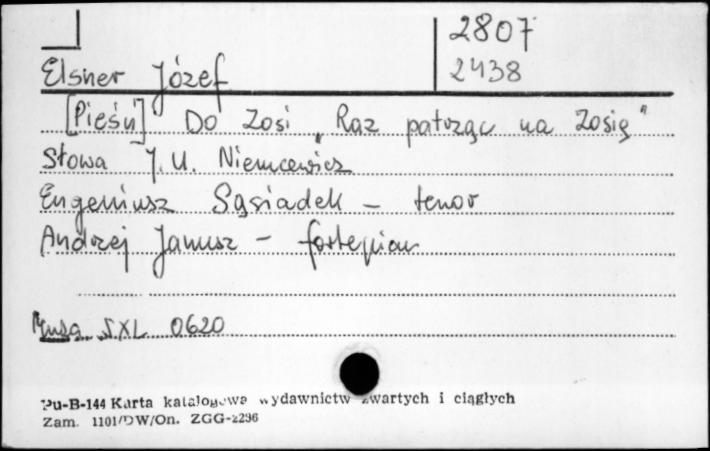 2807
2438
Elsner Józef
[Pieśń] Do Zosi "Raz patrząc na Zosię"
Słowa J. U. Niemcewicz
Eugeniusz Sąsiadek – tenor
Andrzej Janusz – fortepian
Muza SXL 0620
Pu-B-144 Karta katalogowa wydawnictw zwartych i ciągłych
Zam. 1101/DW/On. ZGG-2296